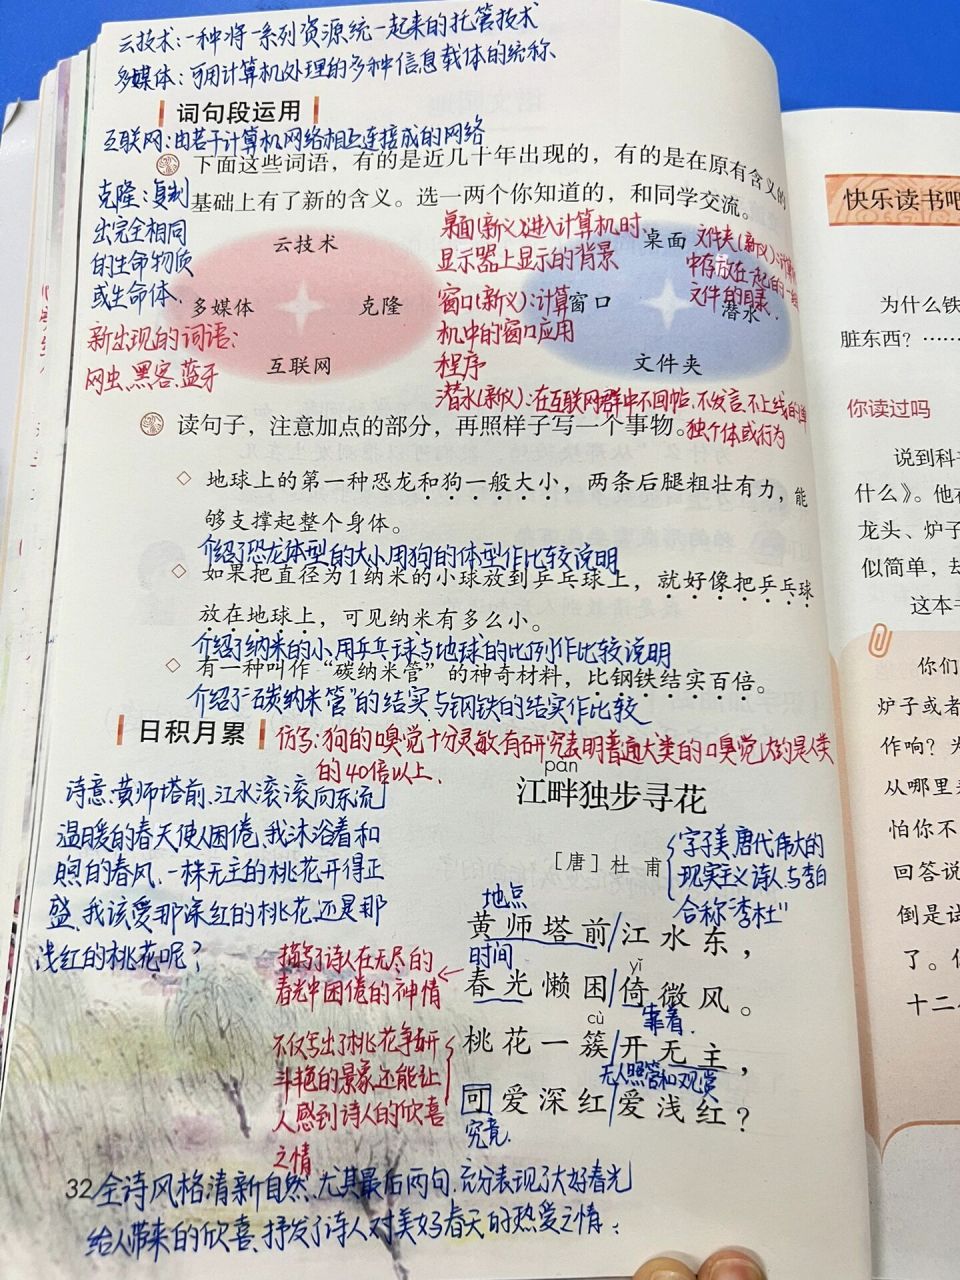 云技术:一种将一系列资源统一起来的托管技术
多媒体:可用计算机处理的多种信息载体的统称
词句段运用
互联网:由若干计算机网络相互连接成的网络
下面这些词语，有的是近几十年出现的，有的是在原有含义的
基础上有了新的含义。选一两个你知道的，和同学交流。
克隆:复制
出完全相同
的生命物质
或生命体、
云技术
多媒体
克隆
互联网
新出现的词语:
网虫、黑客、蓝牙
桌面(新义)进入计算机时
显示器上显示的背景
桌面
文件夹(新义):计算机
中存放在一起的一组
文件的目录.
窗口(新义):计算
机中的窗口应用
程序
窗口
潜水
文件夹
潜水(新义):在互联网群中不回帖、不发言、不上线的单
独个体或行为
读句子，注意加点的部分，再照样子写一个事物。
◇ 地球上的第一种恐龙和狗一般大小，两条后腿粗壮有力，能
够支撑起整个身体。
介绍了恐龙体型的大小用狗的体型作比较说明
◇ 如果把直径为1纳米的小球放到乒乓球上，就好像把乒乓球
放在地球上，可见纳米有多么小。
介绍了纳米的小用乒乓球与地球的比例作比较说明
◇ 有一种叫作“碳纳米管”的神奇材料，比钢铁结实百倍。
介绍了“碳纳米管”的结实与钢铁的结实作比较
日积月累
仿写:狗的嗅觉十分灵敏,有研究表明普通犬类的嗅觉大约是人类
的40倍以上.
诗意:黄师塔前、江水滚滚向东流
温暖的春天使人困倦、我沐浴着和
煦的春风、一株无主的桃花开得正
盛、我该爱那深红的桃花、还是那
浅红的桃花呢?
pàn
江畔独步寻花
［唐］杜 甫
字子美,唐代伟大的
现实主义诗人与李白
合称“李杜”
地点
黄师塔前/江水东，
时间
yǐ
春光懒困/倚微风。
靠着.
cù
桃花一簇/开无主，
无人照管和观赏
可爱深红/爱浅红？
究竟.
描写了诗人在无尽的
春光中困倦的神情
不仅写出了桃花争妍
斗艳的景象还能让
人感到诗人的欣喜
之情
32
全诗风格清新自然、尤其最后两句、充分表现了大好春光
给人带来的欣喜、抒发了诗人对美好春天的热爱之情;
快乐读书吧
为什么铁
脏东西？……
你读过吗
说到科
什么》。他
龙头、炉子
似简单，却
这本书
你们
炉子或者
作响？为
从哪里
怕你不
回答说
倒是试
了。
十二